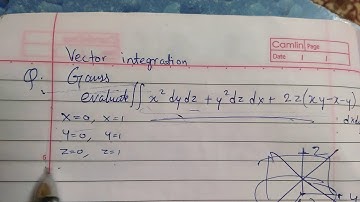 Vector integration
Camlin Page
Date / /
Q. Gauss
evaluate ∬ x² dy dz + y² dz dx + 2z(xy-x-y)
dxd
x=0, x=1
y=0, y=1
z=0, z=1
+z